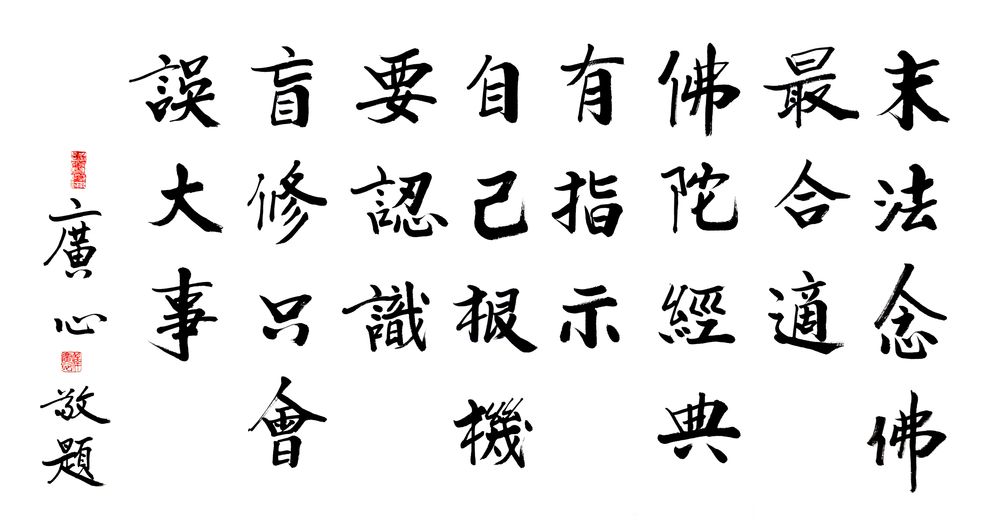 末法念佛
最合適
佛陀經典
有指示
自己根機
要認識
盲修只會
誤大事
廣心敬題